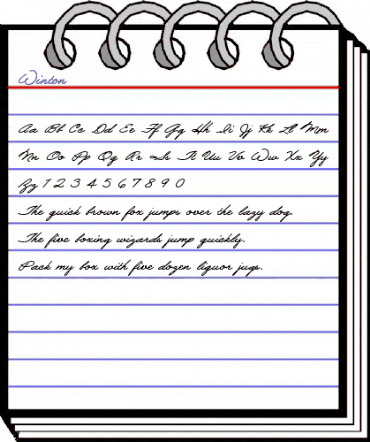 Winton
Aa Bb Cc Dd Ee Ff Gg Hh Ii Jj Kk Ll Mm
Nn Oo Pp Qq Rr Ss Tt Uu Vv Ww Xx Yy
Zz 1 2 3 4 5 6 7 8 9 0
The quick brown fox jumps over the lazy dog.
The five boxing wizards jump quickly.
Pack my box with five dozen liquor jugs.